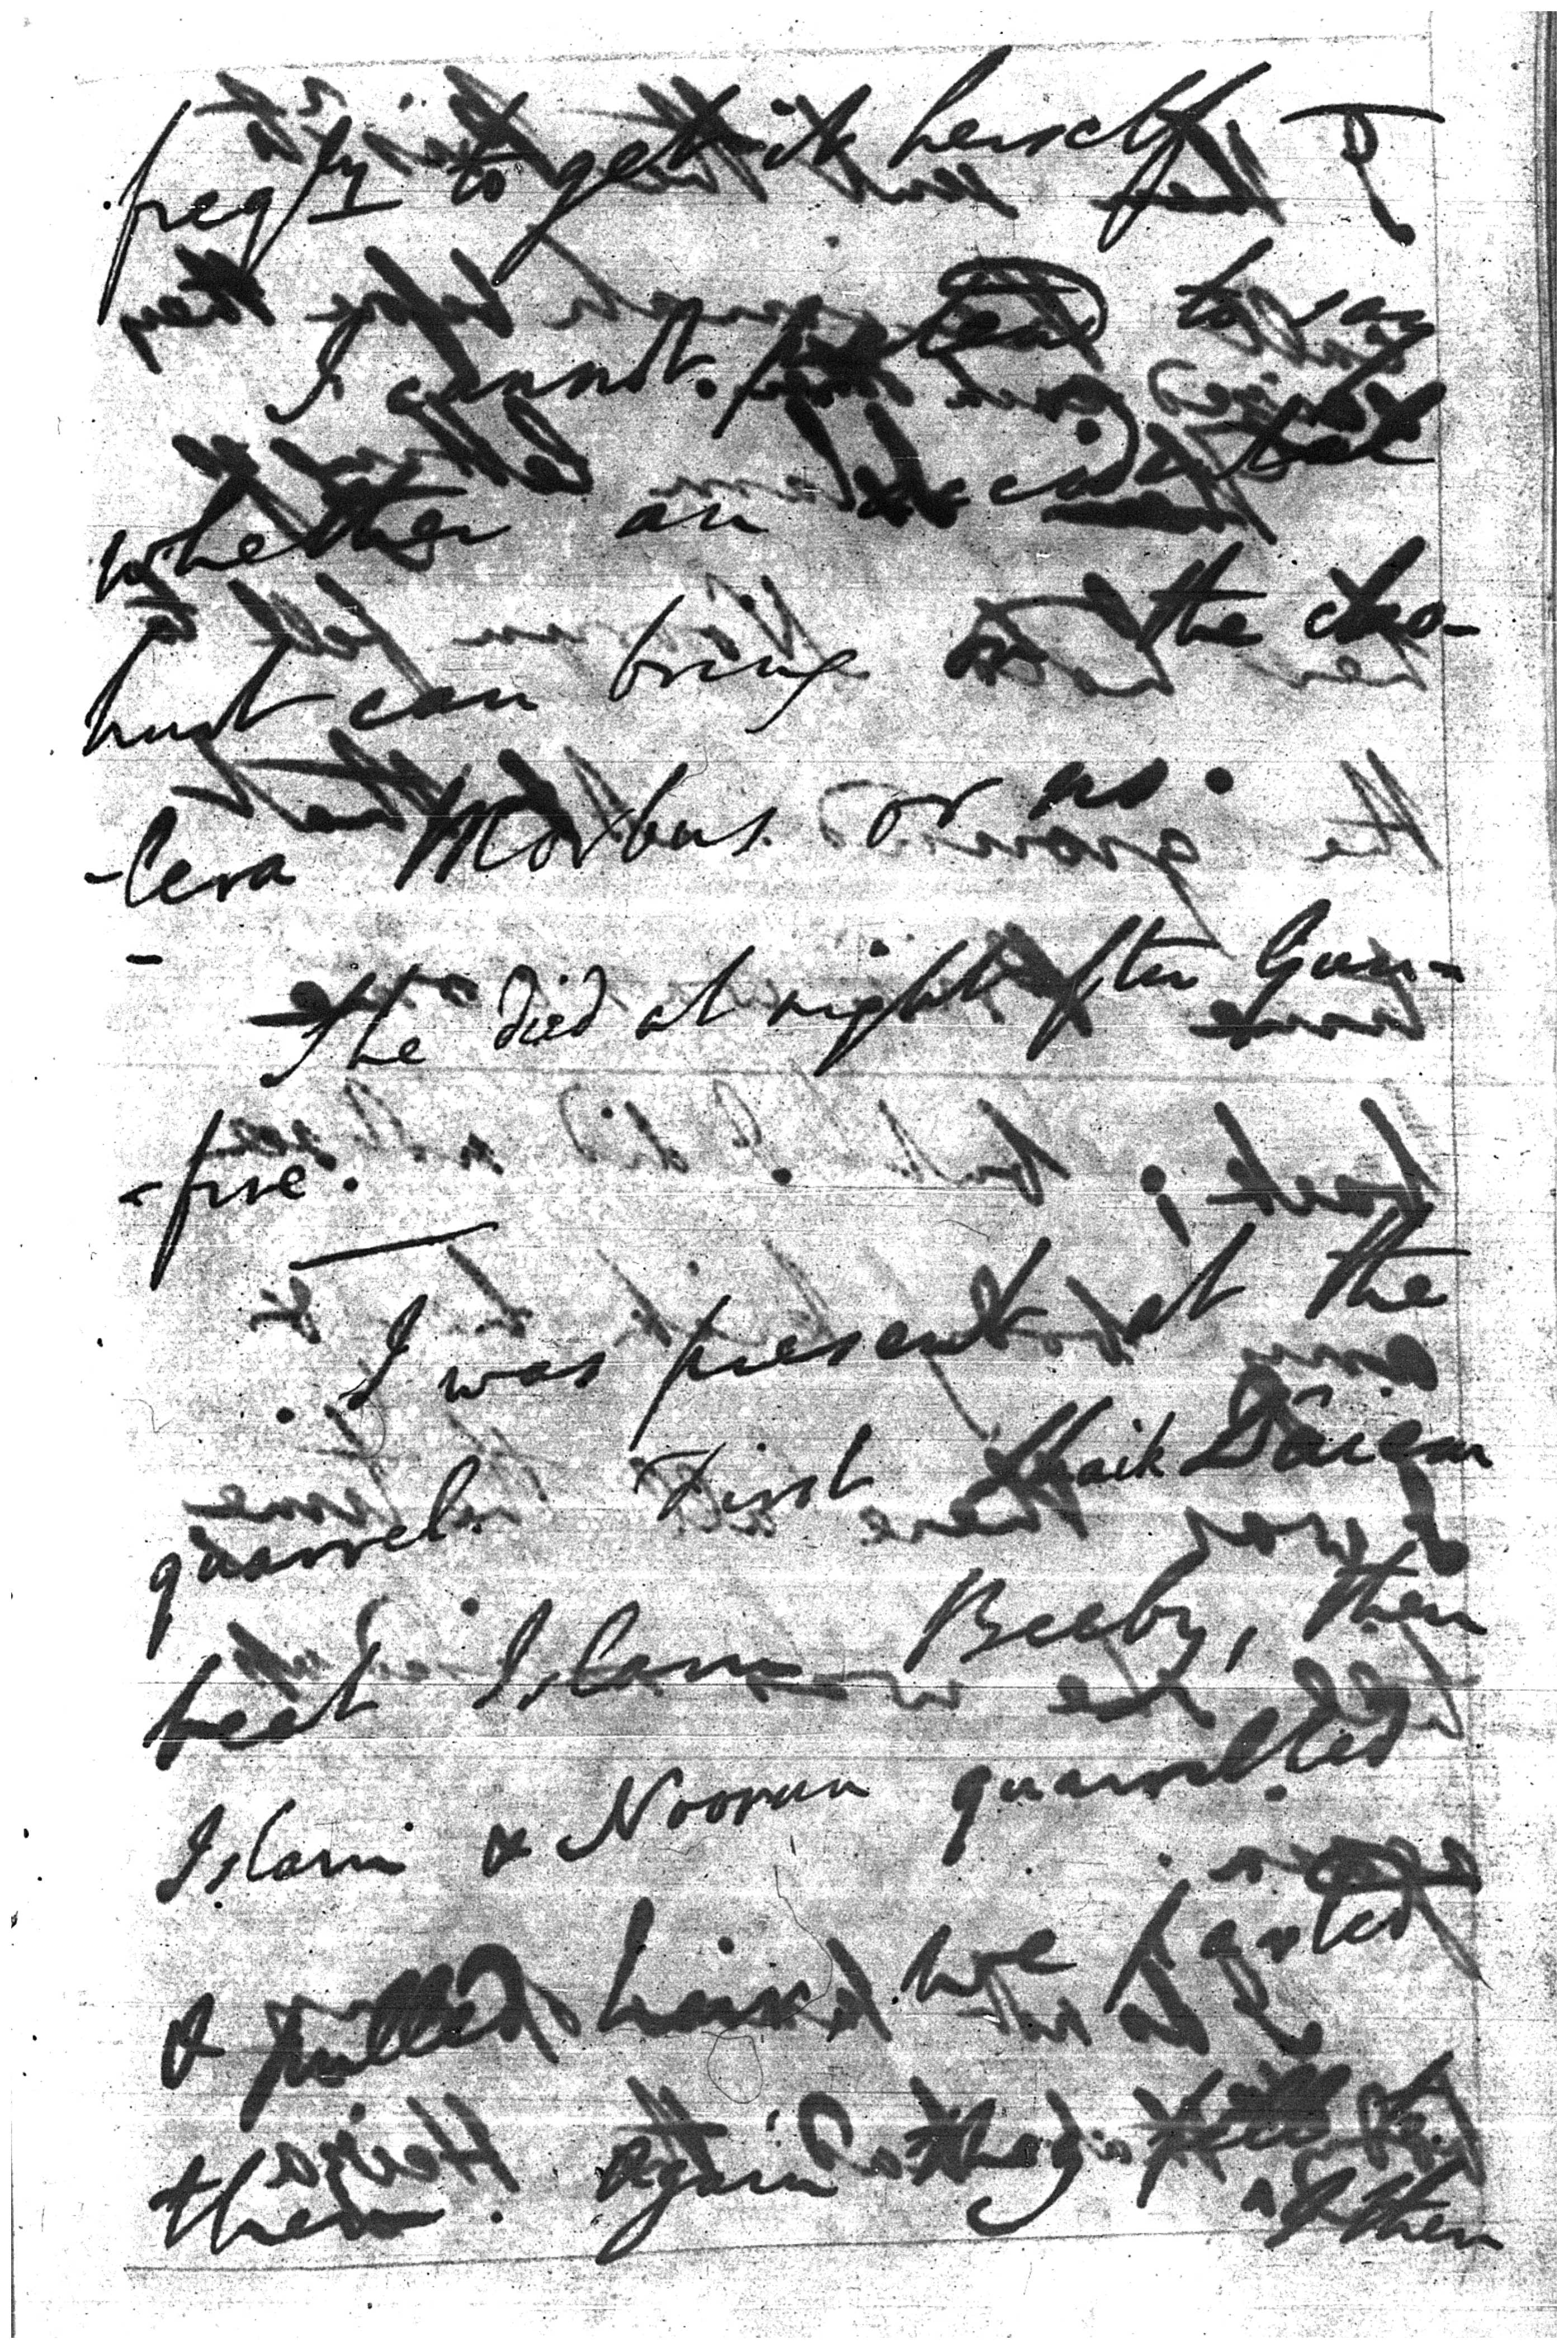 freqly to get it herself.
I cannot pretend to say
whether an accident
hurt can bring on the cho-
-lera Morbus or as
She died at night after Gun-
-fire.
I was present at the
quarrel. First Shaik
beat Islam Beeby, then
Islam & Noorun quarrelled
& pulled hair & we parted
them. Again they fell to.
& then